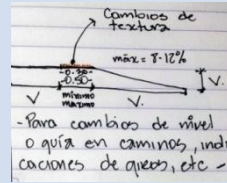 Cambios de
textura
máx = 8-12%
-0.30-
-0.50-
mínimo
máximo
V
V.
V.
-Para cambios de nivel
o guía en caminos, indi
caciones de giros, etc-